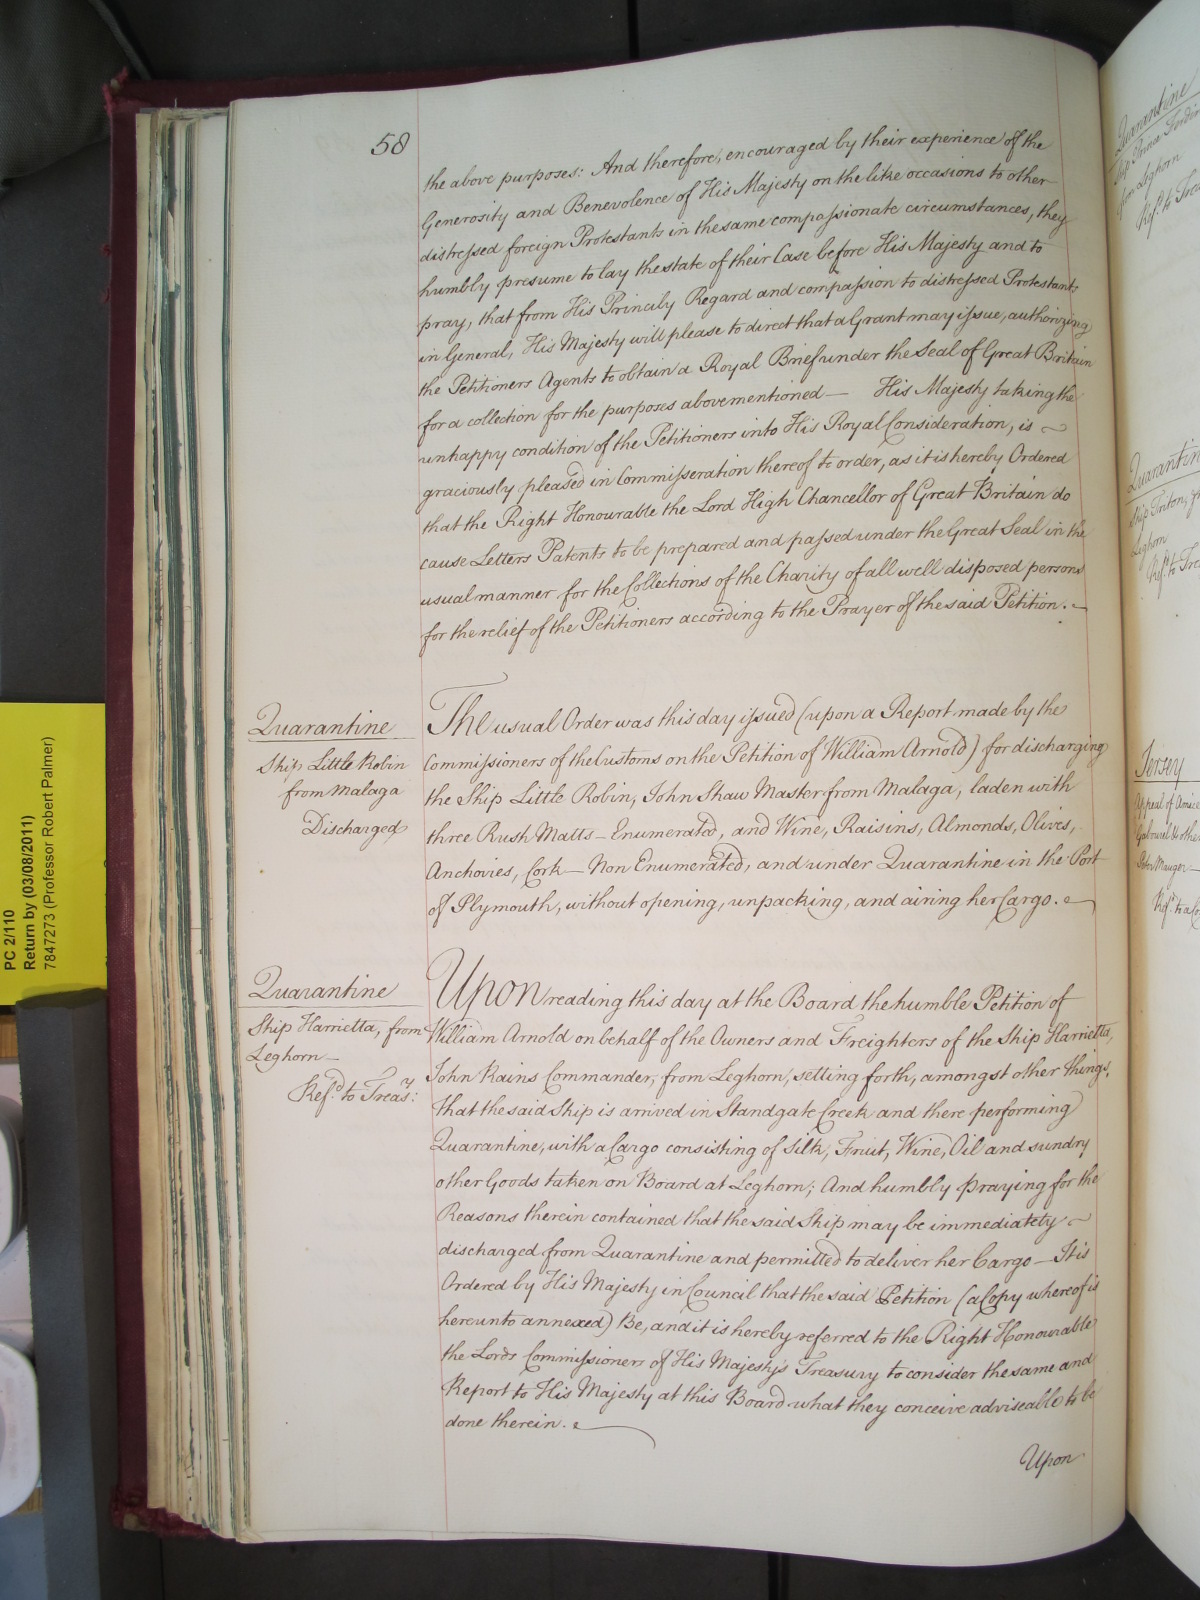 58
the above purposes: And therefore, encouraged by their experience of the
Generosity and Benevolence of His Majesty on the like occasions to other
distressed foreign Protestants in the same compassionate circumstances, they
humbly presume to lay the state of their Case before His Majesty and to
pray, that from His Princily Regard and compassion to distressed Protestants
in General, His Majesty will please to direct that a Grant may issue, authorizing
the Petitioners Agents to obtain a Royal Brief under the Seal of Great Britain
for a collection for the purposes abovementioned — His Majesty taking the
unhappy condition of the Petitioners into His Royal Consideration, is
graciously pleased in Commisseration thereof to order, as it is hereby Ordered
that the Right Honourable the Lord High Chancellor of Great Britain do
cause Letters Patents to be prepared and passed under the Great Seal in the
usual manner for the Collections of the Charity of all well disposed persons
for the relief of the Petitioners according to the Prayer of the said Petition. —
Quarantine
Ship Little Robin
from Malaga
Discharged
The usual Order was this day issued (upon a Report made by the
Commissioners of the Customs on the Petition of William Arnold) for discharging
the Ship Little Robin, John Shaw Master from Malaga, laden with
three Rush Matts — Enumerated, and Wine, Raisins, Almonds, Olives,
Anchovies, Cork — Non Enumerated, and under Quarantine in the Port
of Plymouth, without opening, unpacking, and airing her Cargo.
Quarantine
Ship Harrietta, from
Leghorn —
Ref.d to Treas.y:
Upon reading this day at the Board the humble Petition of
William Arnold on behalf of the Owners and Freighters of the Ship Harrietta,
John Rains Commander, from Leghorn, setting forth, amongst other things,
that the said Ship is arrived in Standgate Creek and there performing
Quarantine, with a Cargo consisting of Silk, Fruit, Wine, Oil and sundry
other Goods taken on Board at Leghorn; And humbly praying for the
Reasons therein contained that the said Ship may be immediately
discharged from Quarantine and permitted to deliver her Cargo — It is
Ordered by His Majesty in Council that the said Petition (a Copy whereof is
hereunto annexed) Be, and it is hereby referred to the Right Honourable
the Lords Commissioners of His Majesty's Treasury to consider the same and
Report to His Majesty at this Board what they conceive adviseable to be
done therein.
Upon
PC 2/110
Return by (03/08/2011)
7847273 (Professor Robert Palmer)
Quarantine
from Leghorn
Quarantine
Ship Triton,
Leghorn
Jersey
Appeal of